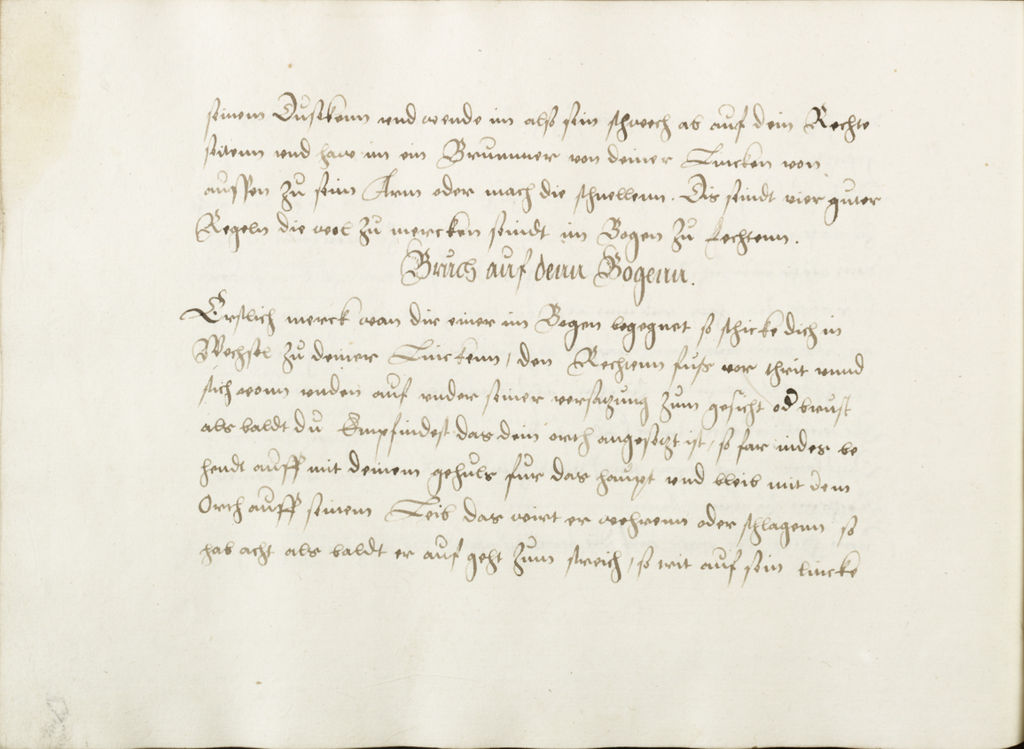 seinem Dusekenn vnd wende im also sein schwech ab auf dein Rechte
seitenn vnd haw im ein Brummer von deiner Lincken von
aussen zů seim Arm oder mach die schnellenn. Dis seindt vier guter
Regeln die wol zů mercken seindt im Bogen zů fechtenn.
Bruch auf denn Bogenn.
Erstlich merck wan dir einer im Bogen begegnet so schicke dich in
Wechsel zů deiner Linckenn, den Rechtenn fuß vor thrit vnnd
stich vonn vnden auf vnder seiner versatzung zum gesicht od brust
als baldt dů Empfindest das dein orth angesetzt ist, so far indes be
hendt aůff mit deinem gehůls fur das haůpt vnd bleib mit dem
Orth aůff seinem Leib das wirt er wehrenn oder schlagenn so
hab acht als baldt er aůf geht zům streich, so trit aůf sein lincke